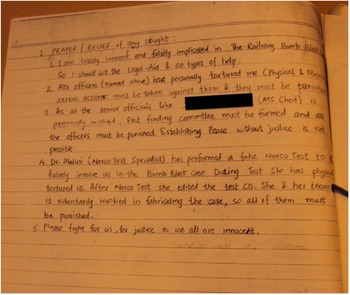 1. PRAYER / RELIEF if any sought :
1. I am totally innocent and falsely implicated in The Railway Bomb Blast
So I should get the Legal-Aid & all types of help.
2. ATS officers (named above) had personally tortured me (Physical & Mental)
serious actions must be taken against them & they must be punished
3. As all the senior officials like (ATS Chief) is
personally involved, Fact finding committee must be formed and all
the officers must be punished. Establishing Peace without justice is not
possible.
4. Dr. Malini (Narco Test Specialist) has performed a fake Narco Test to
falsely involve us in the Bomb Blast case. During Test She has physically
tortured us. After Narco Test she edited the test CD. She & her team
is voluntarily involved in fabricating the case, so all of them must
be punished.
5. Please fight for us, for justice as we all are innocent.